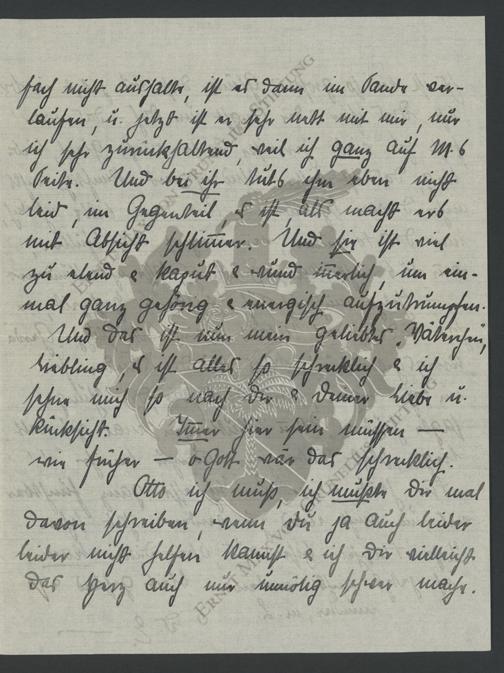 fach nicht aushalte, ist es dann im Sande ver-
laufen, u. jetzt ist er sehr nett mit mir, nur
ich sehr zurückhaltend, weil ich ganz auf M.s
Seite. Und bei ihr tuts ihm eben nicht
leid, im Gegenteil es ist als macht ers
mit Absicht schlimmer. Und sie ist viel
zu elend & kaput & wund innerlich, um ein-
mal ganz gehörig & energisch aufzutrumpfen.
Und das ist nun mein geliebtes „Väterchen“,
Liebling es ist alles so schrecklich & ich
sehne mich so nach dir & deiner Liebe u.
Rücksicht. Immer hier sein müssen —
wie früher — o Gott wär das schrecklich.
Otto, ich muß, ich mußte dir mal
davon schreiben, wenn du ja auch leider
leider nicht helfen kannst & ich dir vielleicht
das Herz auch nur unnötig schwer mache.
ERNST MEYER
STIFTUNG